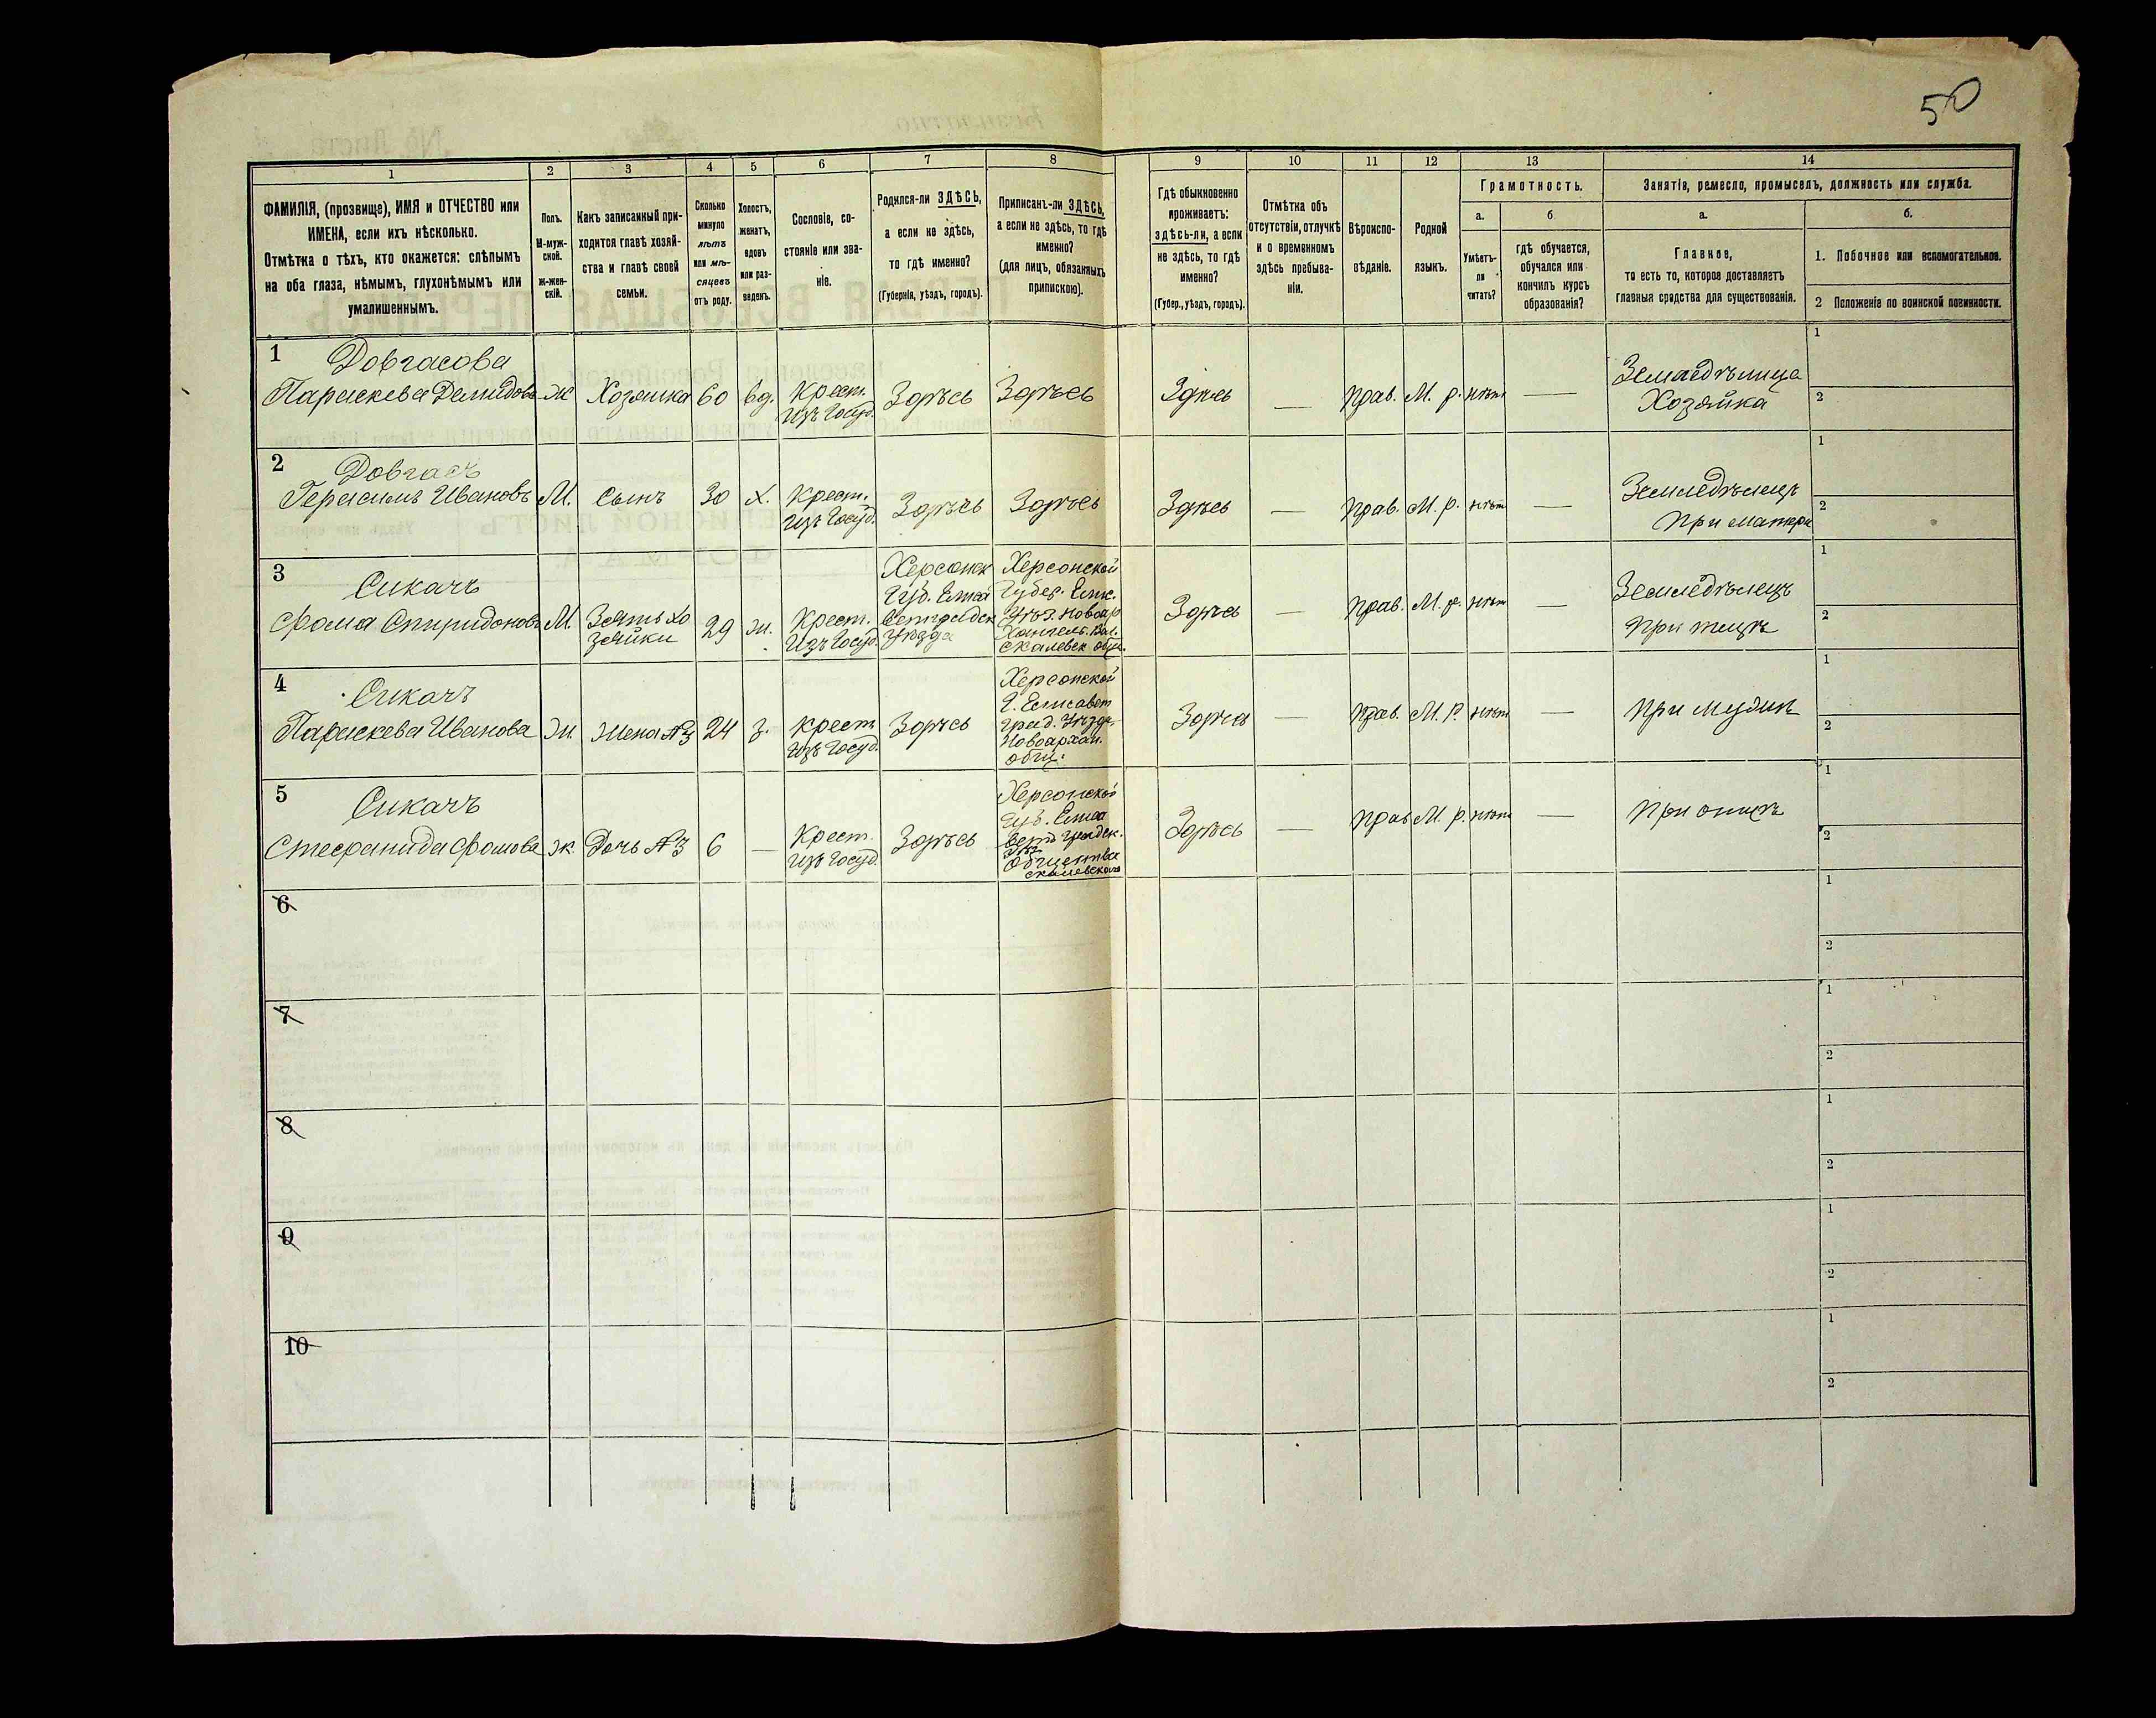 50
1
2
3
4
5
6
7
8
9
10
11
12
13
14
ФАМИЛІЯ, (прозвище), ИМЯ и ОТЧЕСТВО или
ИМЕНА, если ихъ нѣсколько.
Отмѣтка о тѣхъ, кто окажется: слѣпымъ
на оба глаза, нѣмымъ, глухонѣмымъ или
умалишеннымъ.
Полъ.
М-муж-
ской.
ж-жен-
скій.
Какъ записанный при-
ходится главѣ хозяй-
ства и главѣ своей
семьи.
Сколько
минуло
лѣтъ
или мѣ-
сяцевъ
отъ роду.
Холостъ,
женатъ,
вдовъ
или раз-
веденъ.
Сословіе, со-
стояніе или зва-
ніе.
Родился-ли ЗДѢСЬ,
а если не здѣсь,
то гдѣ именно?
(Губернія, уѣздъ, городъ).
Приписанъ-ли ЗДѢСЬ,
а если не здѣсь, то гдѣ
именно?
(для лицъ, обязанныхъ
припискою).
Гдѣ обыкновенно
проживаетъ:
здѣсь-ли, а если
не здѣсь, то гдѣ
именно?
(Губер., уѣздъ, городъ).
Отмѣтка объ
отсутствіи, отлучкѣ
и о временномъ
здѣсь пребыва-
ніи.
Вѣроиспо-
вѣданіе.
Родной
языкъ.
Грамотность.
а.
б
Умѣетъ-
ли
читать?
гдѣ обучается,
обучался или
кончилъ курсъ
образованія?
Занятія, ремесло, промыселъ, должность или служба.
а.
б.
Главное,
то есть то, которое доставляетъ
главныя средства для существованія.
1. Побочное или вспомогательное.
2 Положеніе по воинской повинности.
1
Довгасова
Параскева Демидова
Ж
Хозяйка
60
вд.
Крест.
Изъ Госуд.
Здѣсь
Здѣсь
Здѣсь
—
Прав.
М. р.
нѣтъ
—
Земледѣлица
Хозяйка
1
2
2
Довгасъ
Герасимъ Ивановъ
М.
Сынъ
30
Х.
Крест.
Изъ Госуд.
Здѣсь
Здѣсь
Здѣсь
—
Прав.
М. р.
нѣтъ
—
Земледѣлецъ
При матери
1
2
3
Сикачъ
Фома Спиридоновъ
М.
Зять хо
зяйки
29
ж.
Крест.
Изъ Госуд.
Херсонск
Губ. Елиса
ветградск
Уѣзда
Херсонской
Губер. Елис.
Уѣз. Новоар
Хангельс. Вол.
Скалевск общ.
Здѣсь
—
Прав.
М. р.
нѣтъ
—
Земледѣлецъ
При тещѣ
1
2
4
Сикачъ
Параскева Иванова
Ж.
Жена №3
24
з.
Крест
Изъ Госуд.
Здѣсь
Херсонской
Г. Елисавет
град. Уѣзда
Новоархан.
общ.
Здѣсь
—
Прав.
М. Р.
нѣтъ
—
При мужѣ
1
2
5
Сикачъ
Стефанида Фомова
ж.
Дочь №3
6
—
Крест.
Изъ Госуд.
Здѣсь
Херсонской
Губ. Елиса
ветъ градск.
Уѣз
Общества
Скалевскаго
Здѣсь
—
Прав
М. р.
нѣтъ
—
При отцѣ
1
2
6
1
2
7
1
2
8
1
2
9
1
2
10
1
2